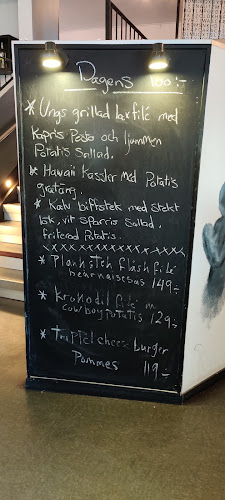 Dagens 100:-
* Ungs grillad laxfilé med
Kapris Pesto och ljummen
Potatis Sallad.
* Hawaii Kassler Med Potatis
gratäng.
* Kalv biffstek med stekt
lök, vit Sparris Sallad.
friterad Potatis.
xxxxxxxxxxxxxxxxxx
* Plankstek fläskfilé
bearnaisesås 149:-
* Krokodil filé m
cowboypotatis 129:-
* Tripelcheese burger
Pommes 119:-